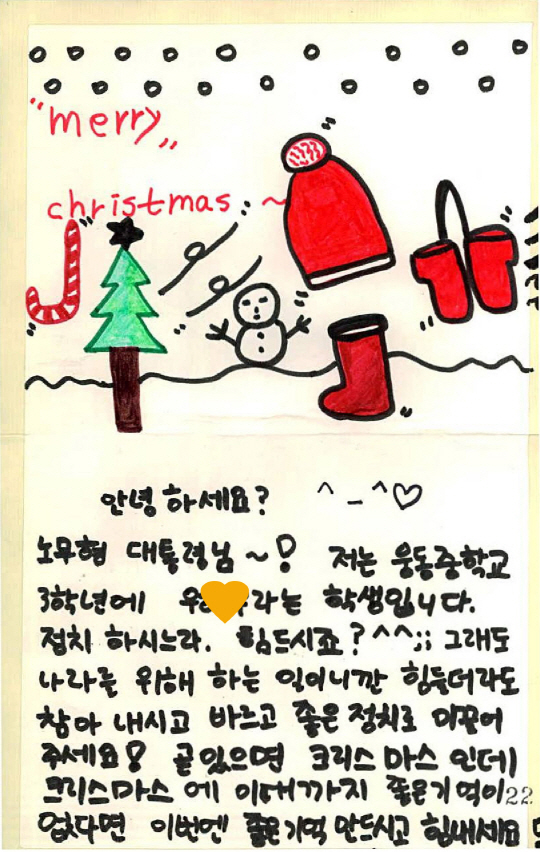 "merry"
christmas ~
안녕하세요? ^_^♡
노무현 대통령님~! 저는 웅동중학교
3학년에 우 라는 학생입니다.
정치 하시느라. 힘드시죠?^^;; 그래도
나라를 위해 하는 일이니깐 힘들더라도
참아 내시고 바르고 좋은 정치로 이끌어
주세요! 곧있으면 크리스마스 인데
크리스마스에 이때까지 좋은기억이
22
없다면 이번엔 좋은기억 만드시고 힘내세요!